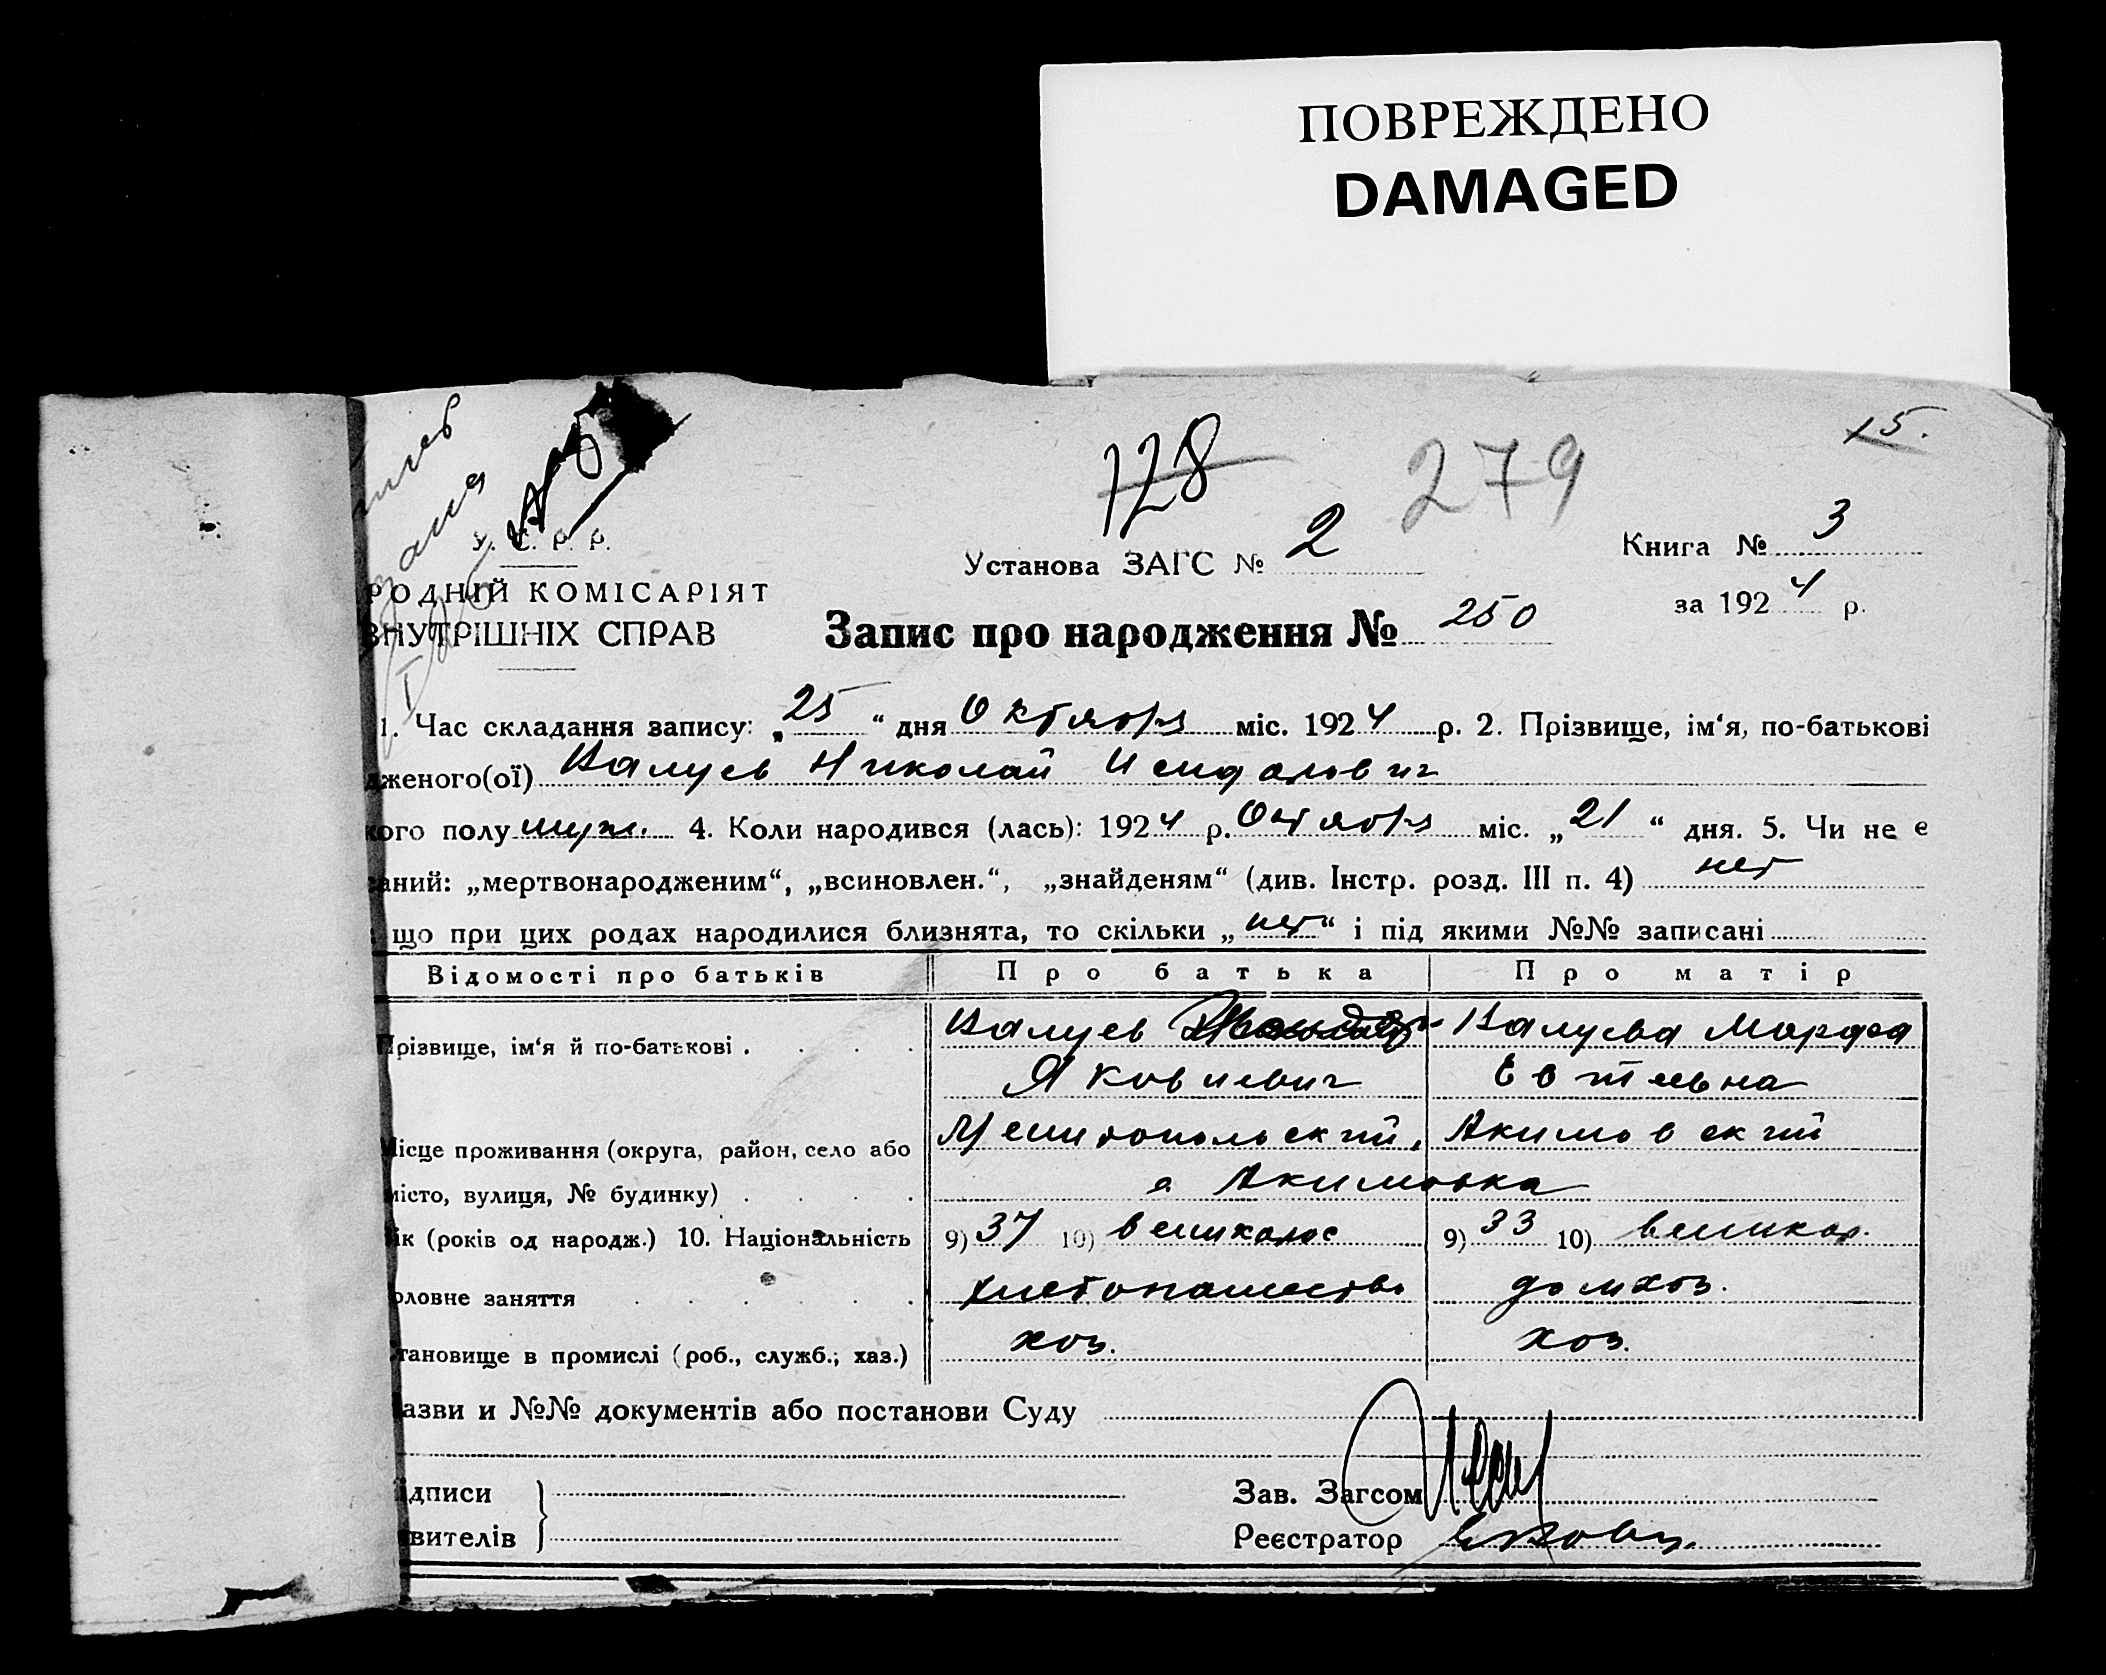 ПОВРЕЖДЕНО
DAMAGED
15.
128
279
У. С. Р. Р.
РОДНІЙ КОМІСАРІЯТ
ВНУТРІШНІХ СПРАВ
Установа ЗАГС № 2
Книга № 3
за 1924 р.
Запис про народження № 250
1. Час складання запису: „25“ дня Октября міс. 1924 р. 2. Прізвище, ім‘я, по-батькові
дженого(ої) Валуев Николай
кого полу муж. 4. Коли народився (лась): 1924 р. Октября міс. „21“ дня. 5. Чи не є
саний: „мертвонародженим“, „всиновлен.“, „знайденям“ (див. Інстр. розд. III п. 4) нет
що при цих родах народилися близнята, то скільки „нет“ і під якими №№ записані
Відомості про батьків Про батька Про матір
Прізвище, ім‘я й по-батькові . Валуев Валуева Марфа
Яковлевич
Мелитопольский, Акимовский
Місце проживання (округа, район, село або
місто, вулиця, № будинку) . с. Акимовка
ік (років од народж.) 10. Національність 9) 37 10) великорос 9) 33 10) великор.
оловне заняття хлебопашество домхоз.
тановище в промислі (роб., служб.; хаз.) хоз. хоз.
азви и №№ документів або постанови Суду
ідписи
явителів
Зав. Загсом
Реєстратор